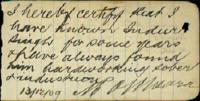 I hereby certify that I
have known Indur
Singh for some years
& have always found
him hardworking sober
& industrious
13/12/09